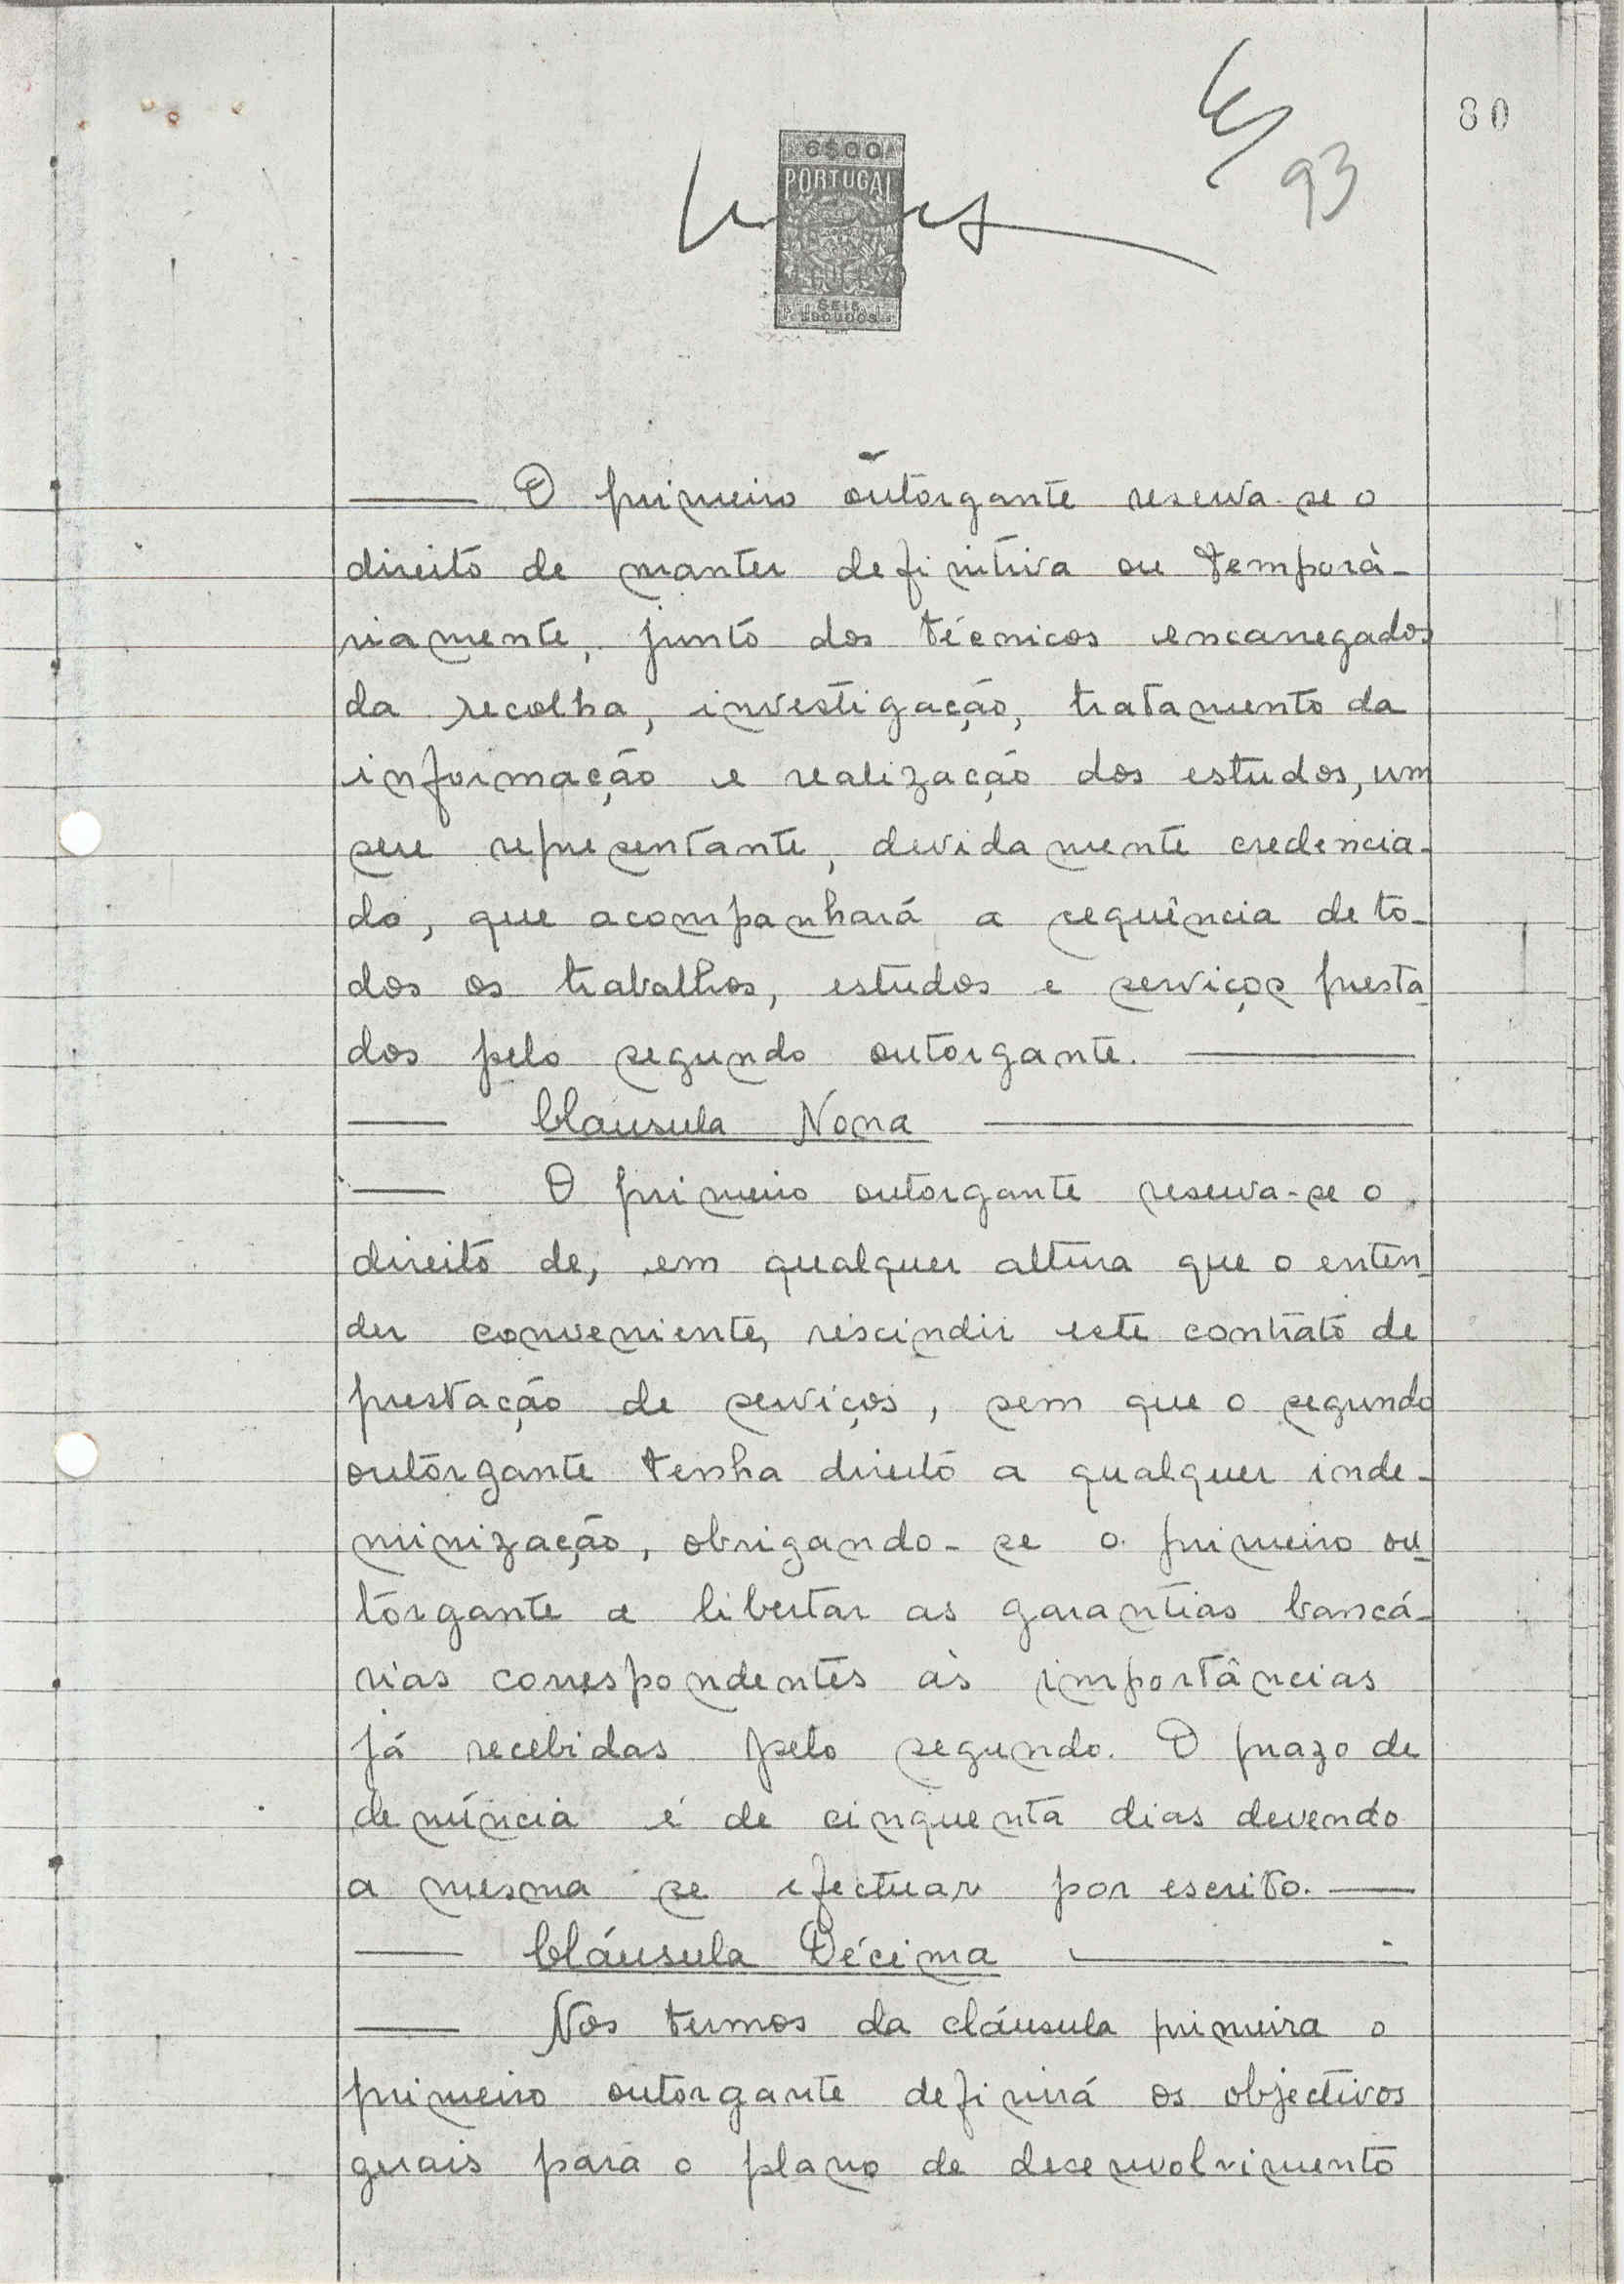 80
93
6$00
PORTUGAL
SEIS
ESCUDOS
——— O primeiro outorgante reserva-se o
direito de manter definitiva ou temporà-
riamente, junto dos técnicos encarregados
da recolha, investigação, tratamento da
informação e realização dos estudos, um
seu representante, devidamente credencia-
do, que acompanhará a sequência de to-
dos os trabalhos, estudos e serviços presta-
dos pelo segundo outorgante. ———
——— Cláusula Nona ———
——— O primeiro outorgante reserva-se o
direito de, em qualquer altura que o enten-
der conveniente, rescindir este contrato de
prestação de serviços, sem que o segundo
outorgante tenha direito a qualquer inde-
minização, obrigando-se o primeiro ou-
torgante a libertar as garantias bancá-
rias correspondentes às importâncias
já recebidas pelo segundo. O prazo de
denúncia é de cinquenta dias devendo
a mesma se efectuar por escrito. ———
——— Cláusula Décima ———
——— Nos termos da cláusula primeira o
primeiro outorgante definirá os objectivos
gerais para o plano de desenvolvimento